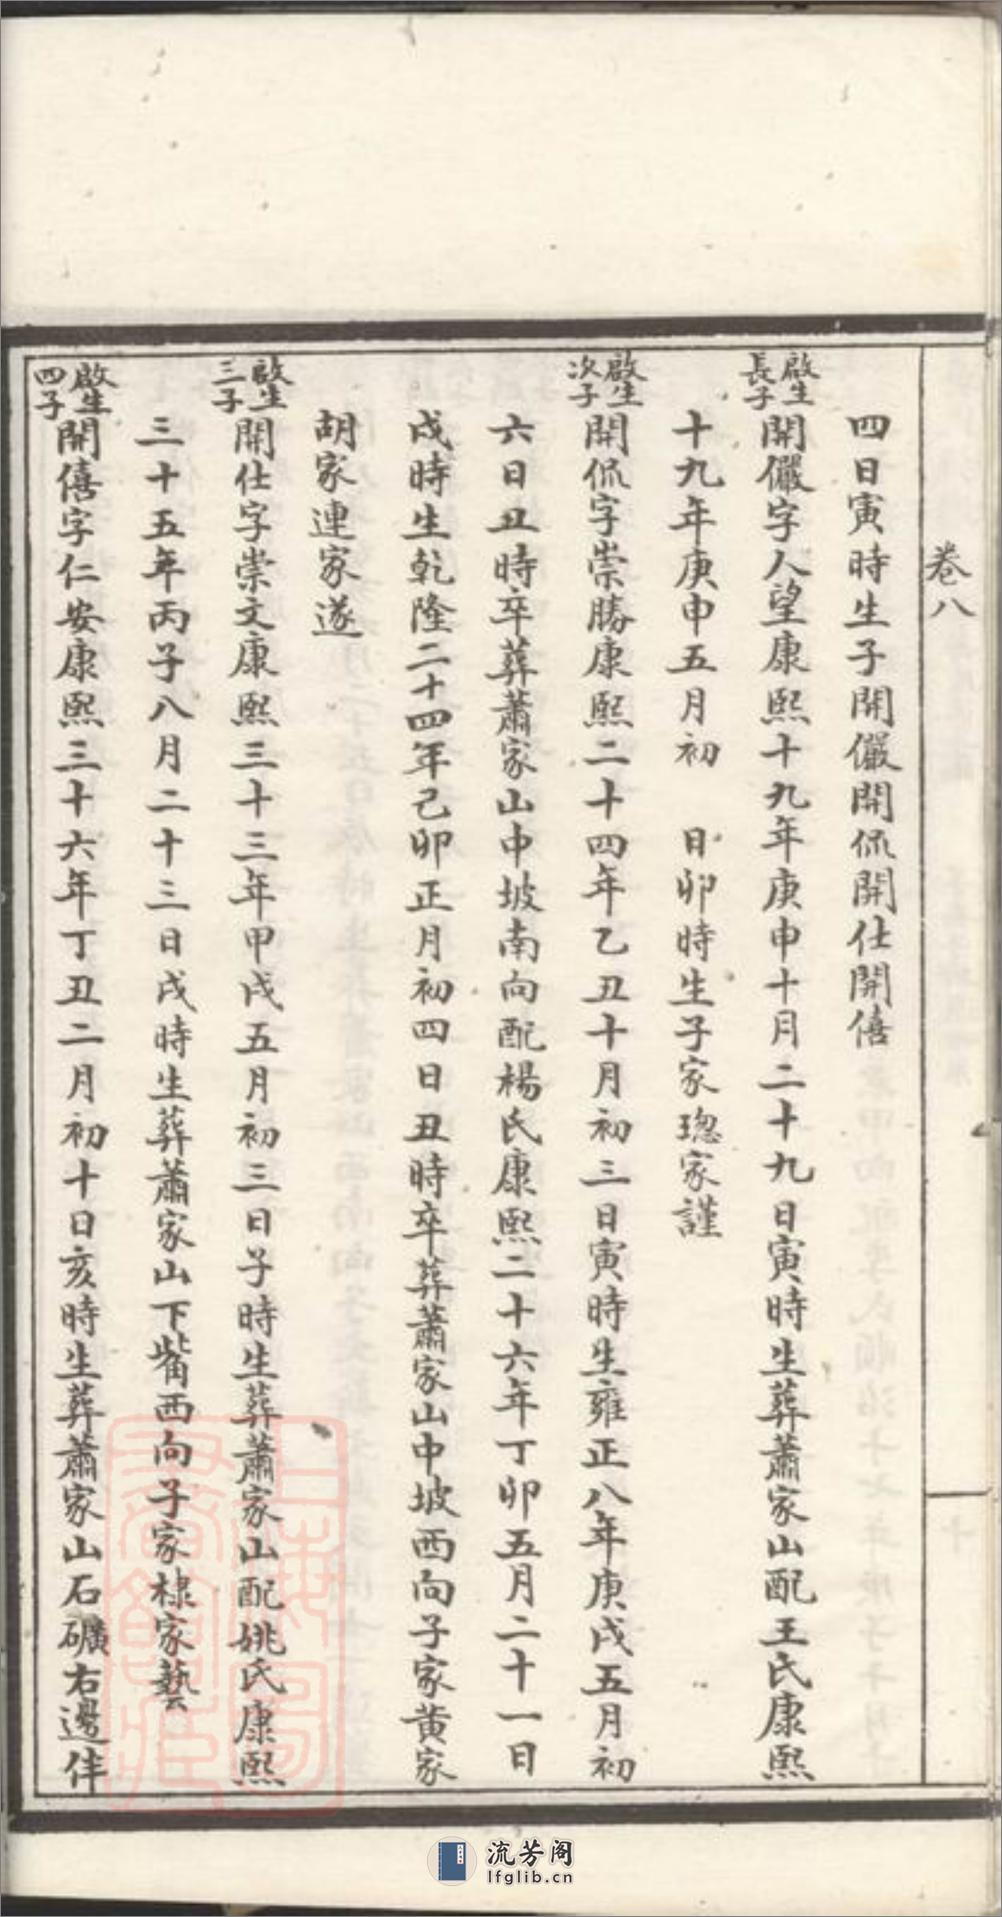 卷八
十
四日寅時生子開儼開侃開仕開僖
啟生長子
開儼字人望康熙十九年庚申十月二十九日寅時生葬蕭家山配王氏康熙
十九年庚申五月初 日卯時生子家璁家謹
啟生次子
開侃字崇勝康熙二十四年乙丑十月初三日寅時生雍正八年庚戌五月初
六日丑時卒葬蕭家山中坡南向配楊氏康熙二十六年丁卯五月二十一日
戌時生乾隆二十四年己卯正月初四日丑時卒葬蕭家山中坡西向子家黄家
胡家連家遂
啟生三子
開仕字崇文康熙三十三年甲戌五月初三日子時生葬蕭家山配姚氏康熙
三十五年丙子八月二十三日戌時生葬蕭家山下嘴西向子家棣家藝
啟生四子
開僖字仁安康熙三十六年丁丑二月初十日亥時生葬蕭家山石礦右邊伴
上海圖書館藏
流芳阁
lfglib.cn